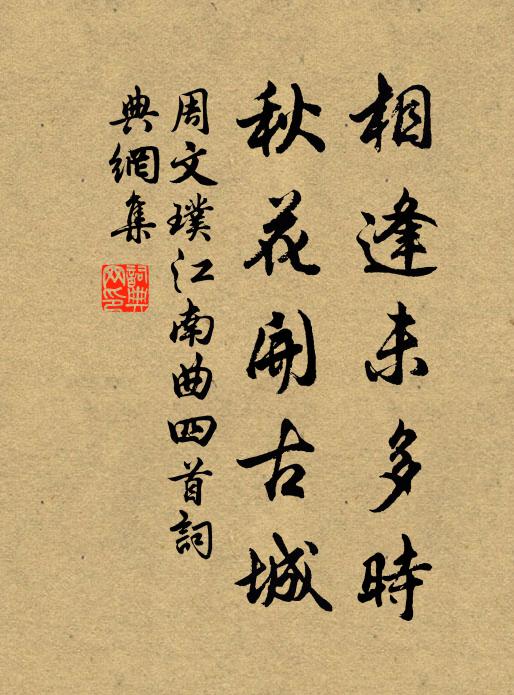 相逢未多時
秋花開古城
周文璞江南曲四首詞
典網集
詞典網印